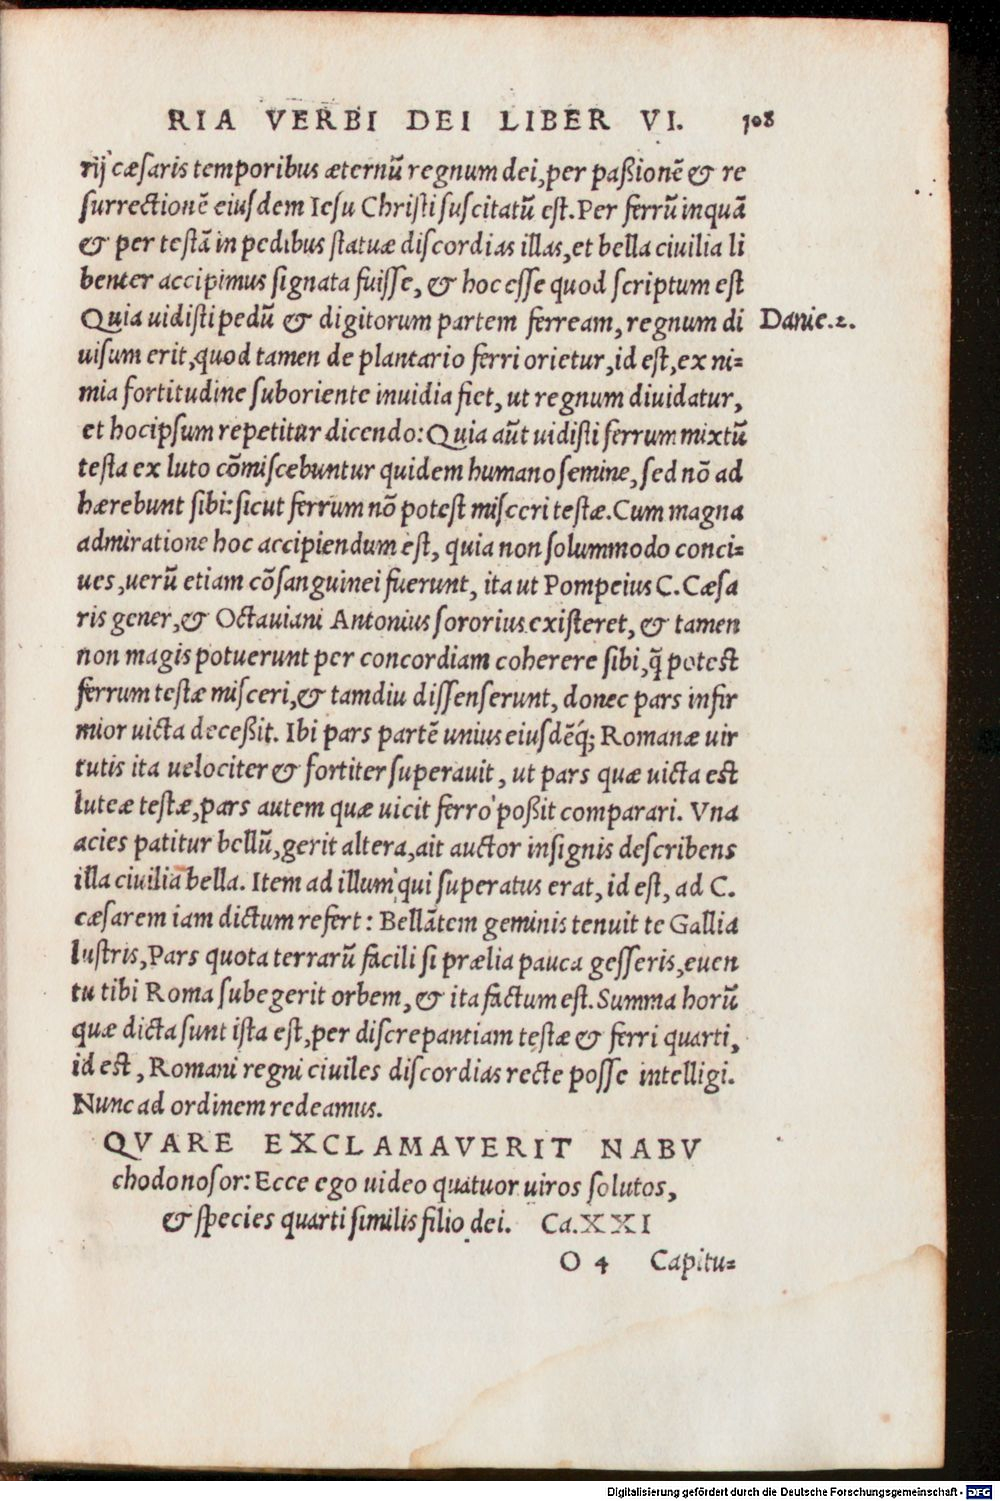 RIA VERBI DEI LIBER VI. 108
rij cæsaris temporibus æternũ regnum dei, per paßionẽ & re
surrectionẽ eiusdem Iesu Christi suscitatũ est. Per ferrũ inquã
& per testã in pedibus statuæ discordias illas, et bella ciuilia li
benter accipimus signata fuisse, & hoc esse quod scriptum est
Quia uidisti pedũ & digitorum partem ferream, regnum di
Danie.2.
uisum erit, quod tamen de plantario ferri orietur, id est, ex ni=
mia fortitudine suboriente inuidia fiet, ut regnum diuidatur,
et hocipsum repetitur dicendo: Quia aũt uidisti ferrum mixtũ
testa ex luto cõmiscebuntur quidem humano semine, sed nõ ad
hærebunt sibi: sicut ferrum nõ potest misceri testæ. Cum magna
admiratione hoc accipiendum est, quia non solummodo conci=
ues, uerũ etiam cõsanguinei fuerunt, ita ut Pompeius C. Cæsa
ris gener, & Octauiani Antonius sororius existeret, & tamen
non magis potuerunt per concordiam coherere sibi, q̃ potest
ferrum testæ misceri, & tamdiu dissenserunt, donec pars infir
mior uicta deceßit. Ibi pars partẽ unius eiusdẽq́; Romanæ uir
tutis ita uelociter & fortiter superauit, ut pars quæ uicta est
luteæ testæ, pars autem quæ uicit ferro poßit comparari. Vna
acies patitur bellũ, gerit altera, ait auctor insignis describens
illa ciuilia bella. Item ad illum qui superatus erat, id est, ad C.
cæsarem iam dictum refert: Bellãtem geminis tenuit te Gallia
lustris, Pars quota terrarũ facili si prælia pauca gesseris, euen
tu tibi Roma subegerit orbem, & ita factum est. Summa horũ
quæ dicta sunt ista est, per discrepantiam testæ & ferri quarti,
id est, Romani regni ciuiles discordias recte posse intelligi.
Nunc ad ordinem redeamus.
QVARE EXCLAMAVERIT NABV
chodonosor: Ecce ego uideo quatuor uiros solutos,
& species quarti similis filio dei. Ca. XXI
O 4 Capitu=
Digitalisierung gefördert durch die Deutsche Forschungsgemeinschaft - DFG